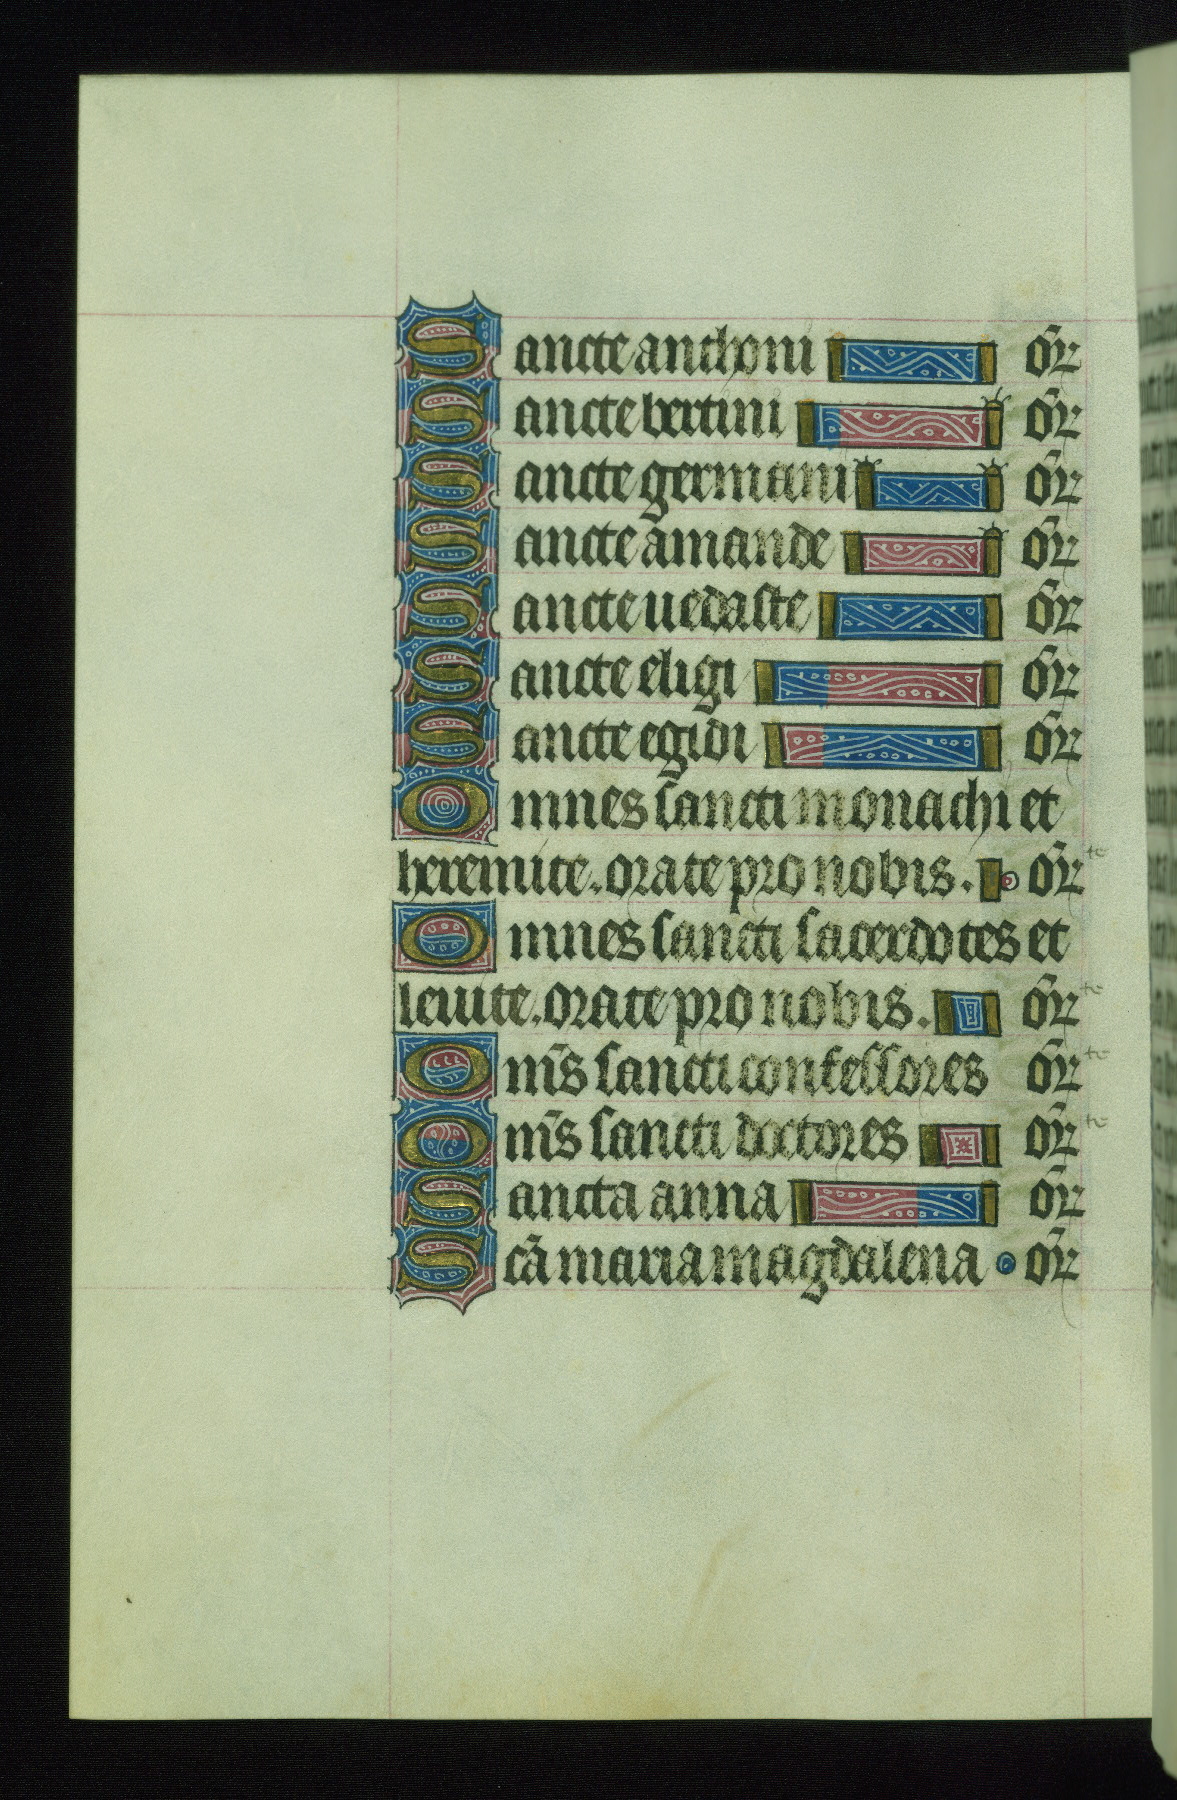 Sancte anthoni or
Sancte bertini or
Sancte germani or
Sancte amande or
Sancte uedaste or
Sancte eligi or
Sancte egidi or
Omnes sancti monachi et
heremite. orate pro nobis. or te
Omnes sancti sacerdotes et
leuite. orate pro nobis. or te
Om̄s sancti confessores or te
Om̄s sancti doctores or te
Sancta anna or
Scā maria magdalena or